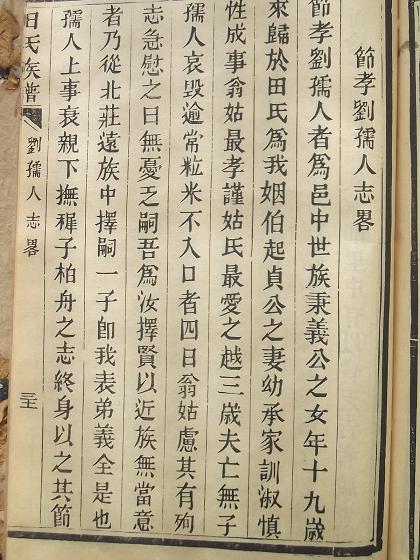 節孝劉孺人志畧
節孝劉孺人者為邑中世族秉義公之女年十九歲
來歸於田氏為我姻伯起貞公之妻幼承家訓淑慎
性成事翁姑最孝謹姑氏最愛之越三歲夫亡無子
孺人哀毀逾常粒米不入口者四日翁姑慮其有殉
志急慰之曰無憂乏嗣吾為汝擇賢以近族無當意
者乃從北莊遠族中擇嗣一子卽我表弟義全是也
孺人上事衰親下撫穉子柏舟之志終身以之其節
田氏族譜
劉孺人志畧